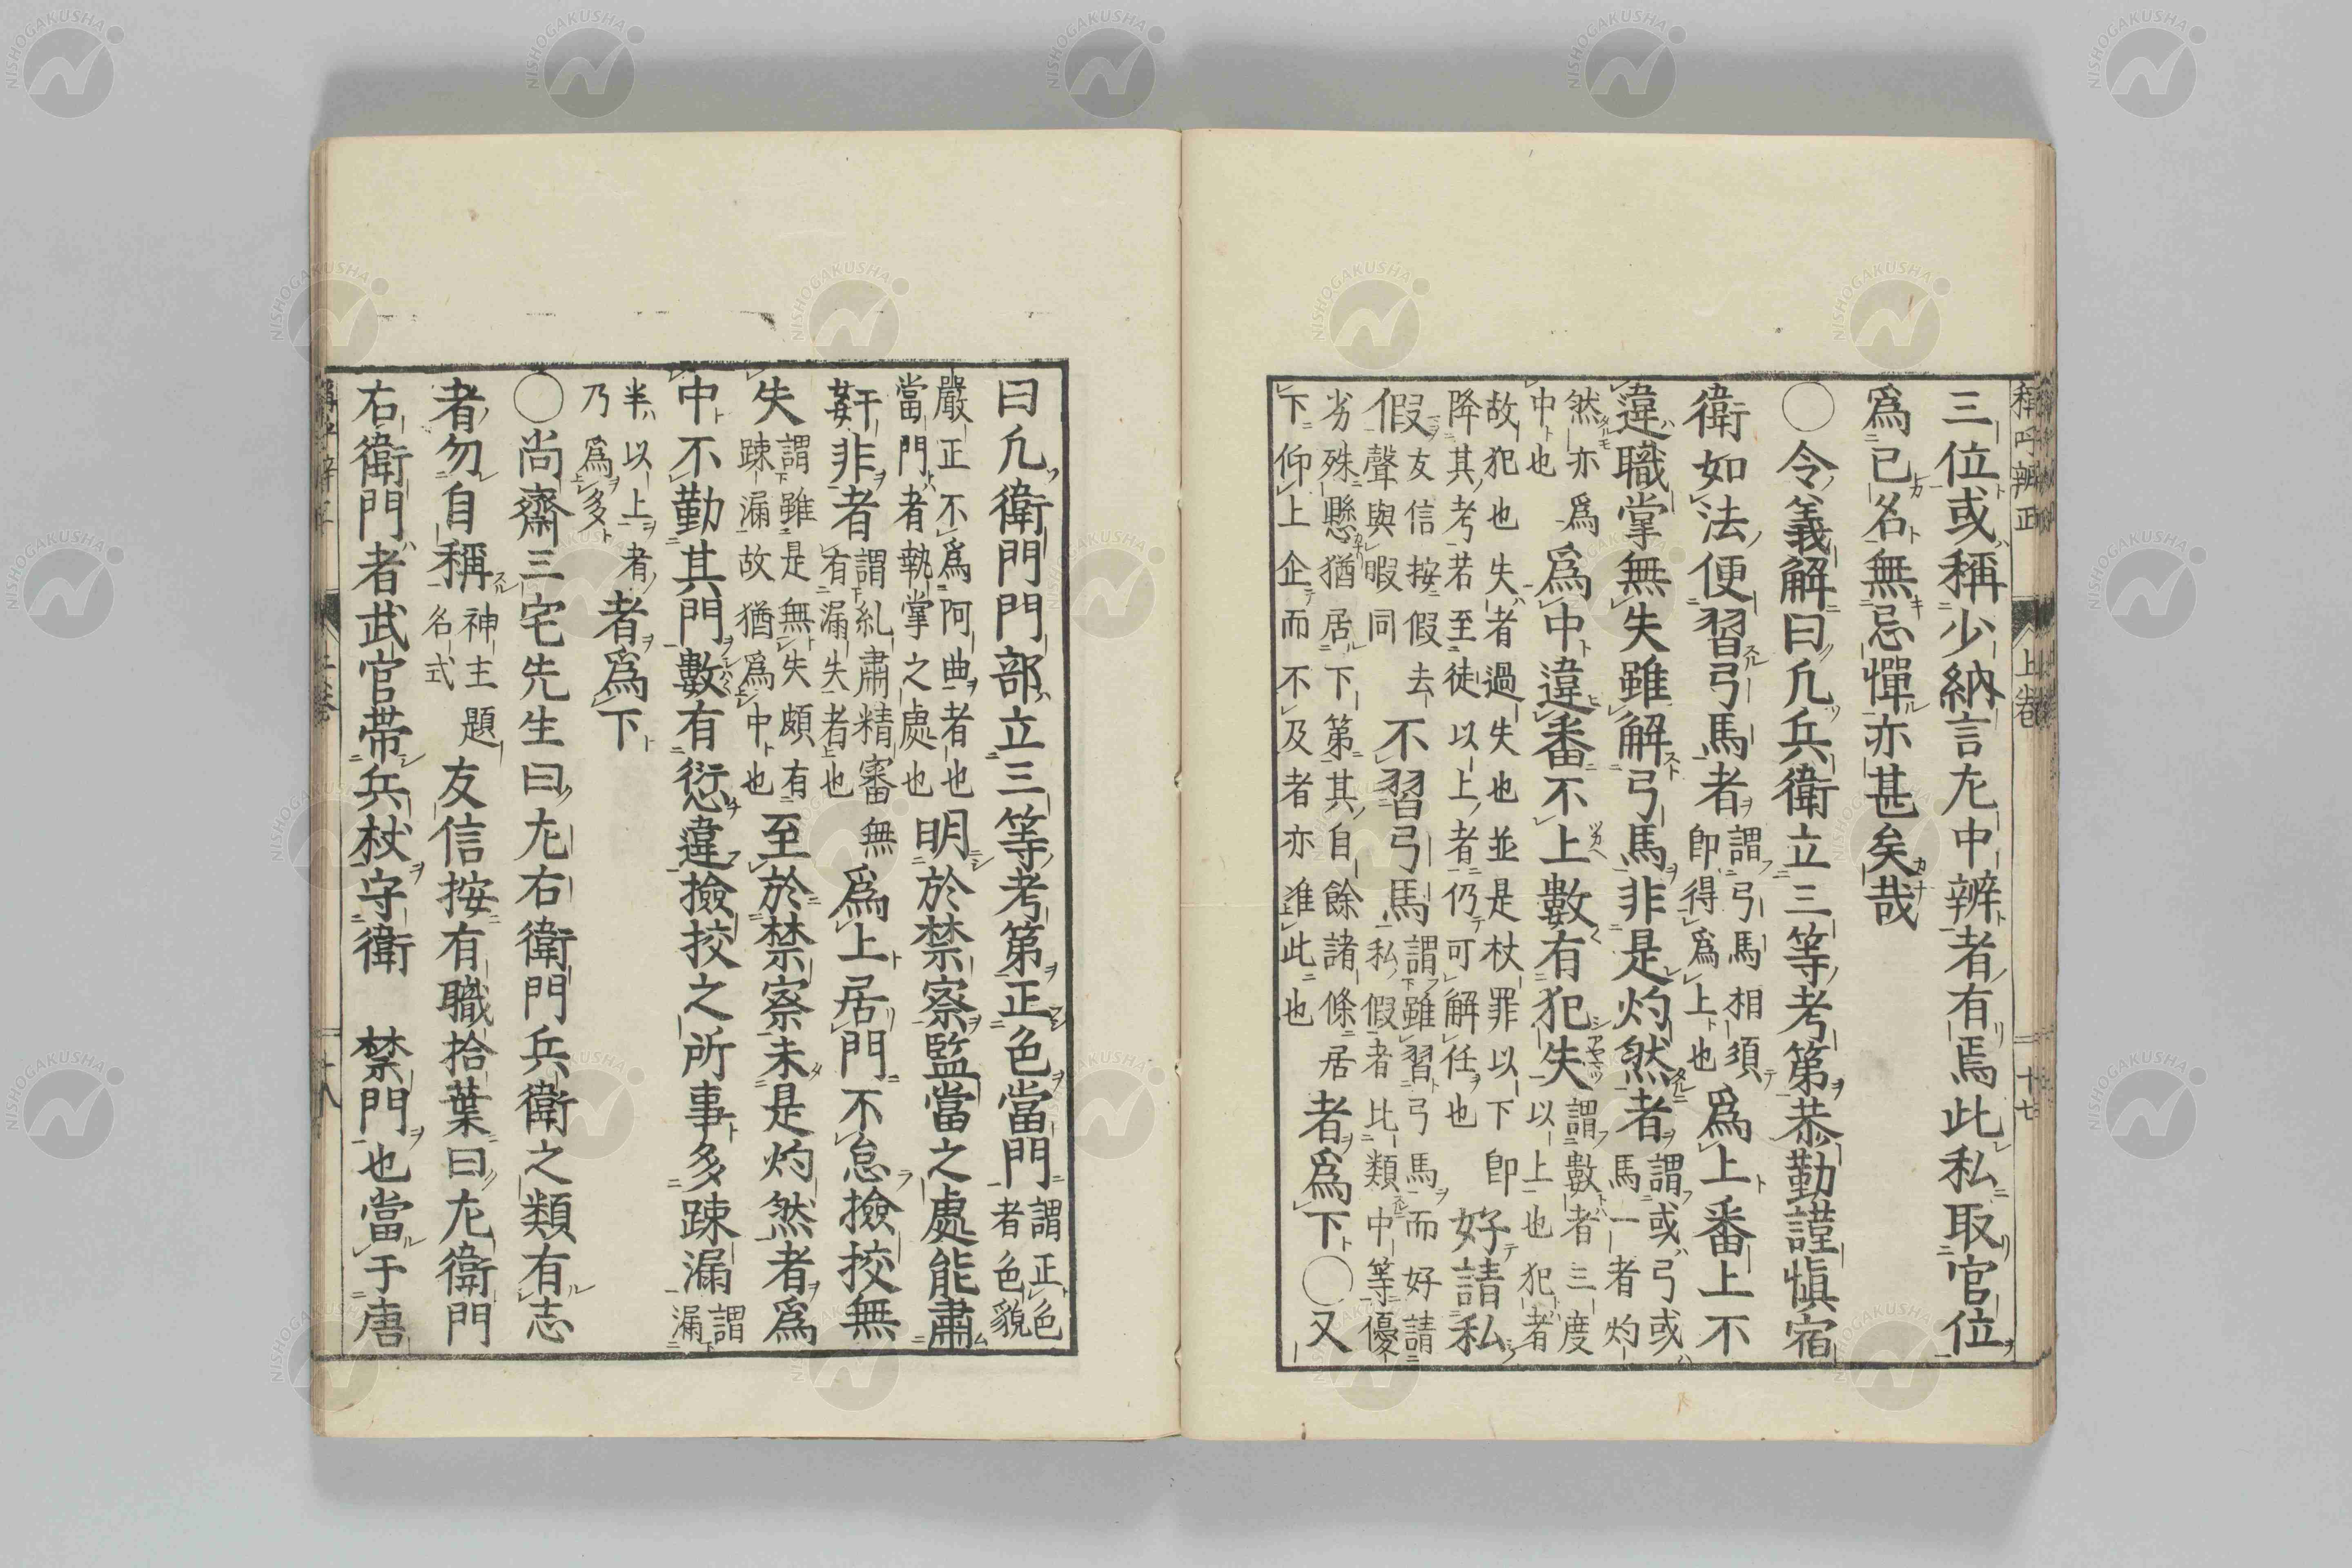 稱呼辨正 上卷 十七
三位或稱少納言左中辨者有焉此私取官位
爲己名無忌憚亦甚矣哉
○令義解曰凡兵衛立三等考第恭勤謹愼宿
衛如法便習弓馬者
謂弓馬相須
即得爲上也
爲上番上不
違職掌無失雖解弓馬非是灼然者
謂或弓或
馬一者灼
然亦爲
中也
爲中違番不上數有犯失
謂數者三度
以上也犯者
故犯也失者過失也並是杖罪以下即
降其考若至徒以上者仍可解任也
好請私
假
友信按假去
聲與暇同
不習弓馬
謂雖習弓馬而好請
私假者比類中等優
劣殊懸猶居下第其自餘諸條居
下仰上企而不及者亦進此也
者爲下○又
曰凡衛門門部立三等考第正色當門
謂正色
者色貌
嚴正不爲阿曲者也
當門者執掌之處也
明於禁察監當之處能肅
姧非者
謂糺肅精審無
有漏失者也
爲上居門不怠撿挍無
失
謂雖是無失頗有
踈漏故猶爲中也
至於禁察未是灼然者爲
中不勤其門數有愆違撿挍之所事多踈漏
謂
漏
半以上者
乃爲多
者爲下
○尚齋三宅先生曰左右衛門兵衛之類有志
者勿自稱
神主題
名式
友信按有職拾葉曰左衛門
右衛門者武官帶兵杖守衛 禁門也當于唐
NISHOGAKUSHA